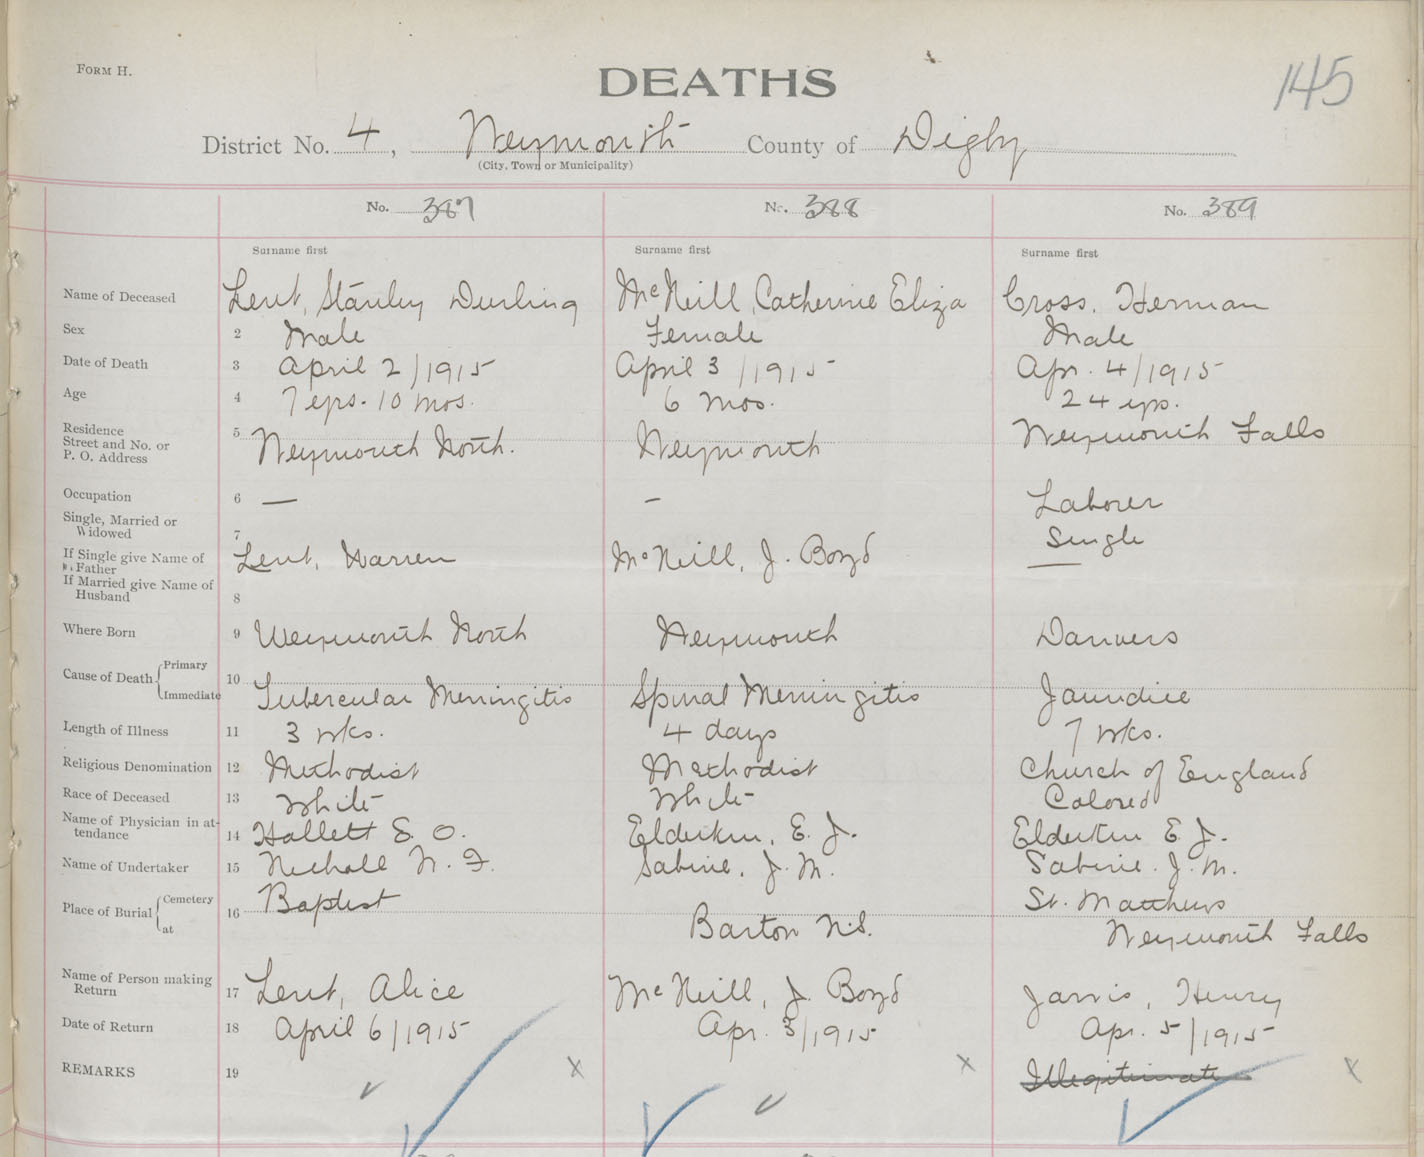 FORM H.
DEATHS
145
District No. 4, Weymouth County of Digby
(City, Town or Municipality)
No. 387 No. 388 No. 389
Surname first Surname first Surname first
Name of Deceased Lent, Stanley Durling McNeill, Catherine Eliza Cross, Herman
Sex 2 Male Female Male
Date of Death 3 April 2/1915 April 3/1915 Apr. 4/1915
Age 4 7 yrs. 10 mos. 6 mos. 24 yrs.
Residence
Street and No. or
P. O. Address 5 Weymouth North. Weymouth Weymouth Falls
Occupation 6 — – Laborer
Single, Married or
Widowed 7 Single
If Single give Name of
Father Lent, Warren McNeill, J. Boyd —
If Married give Name of
Husband 8
Where Born 9 Weymouth North Weymouth Danvers
Cause of Death Primary
Immediate 10 Tubercular Menningitis Spinal Menningitis Jaundice
Length of Illness 11 3 wks. 4 days 7 wks.
Religious Denomination 12 Methodist Methodist Church of England
Race of Deceased 13 White White Colored
Name of Physician in at-
tendance 14 Hallett E. O. Elderkin, E. J. Elderkin E. J.
Name of Undertaker 15 Nichall W. F. Sabine, J. M. Sabine. J. M.
Place of Burial Cemetery 16 Baptist St. Matthews
at Barton N.S. Weymouth Falls
Name of Person making
Return 17 Lent, Alice McNeill, J. Boyd Jarvis, Henry
Date of Return 18 April 6/1915 Apr. 3/1915 Apr. 5/1915
REMARKS 19 Illegitimate